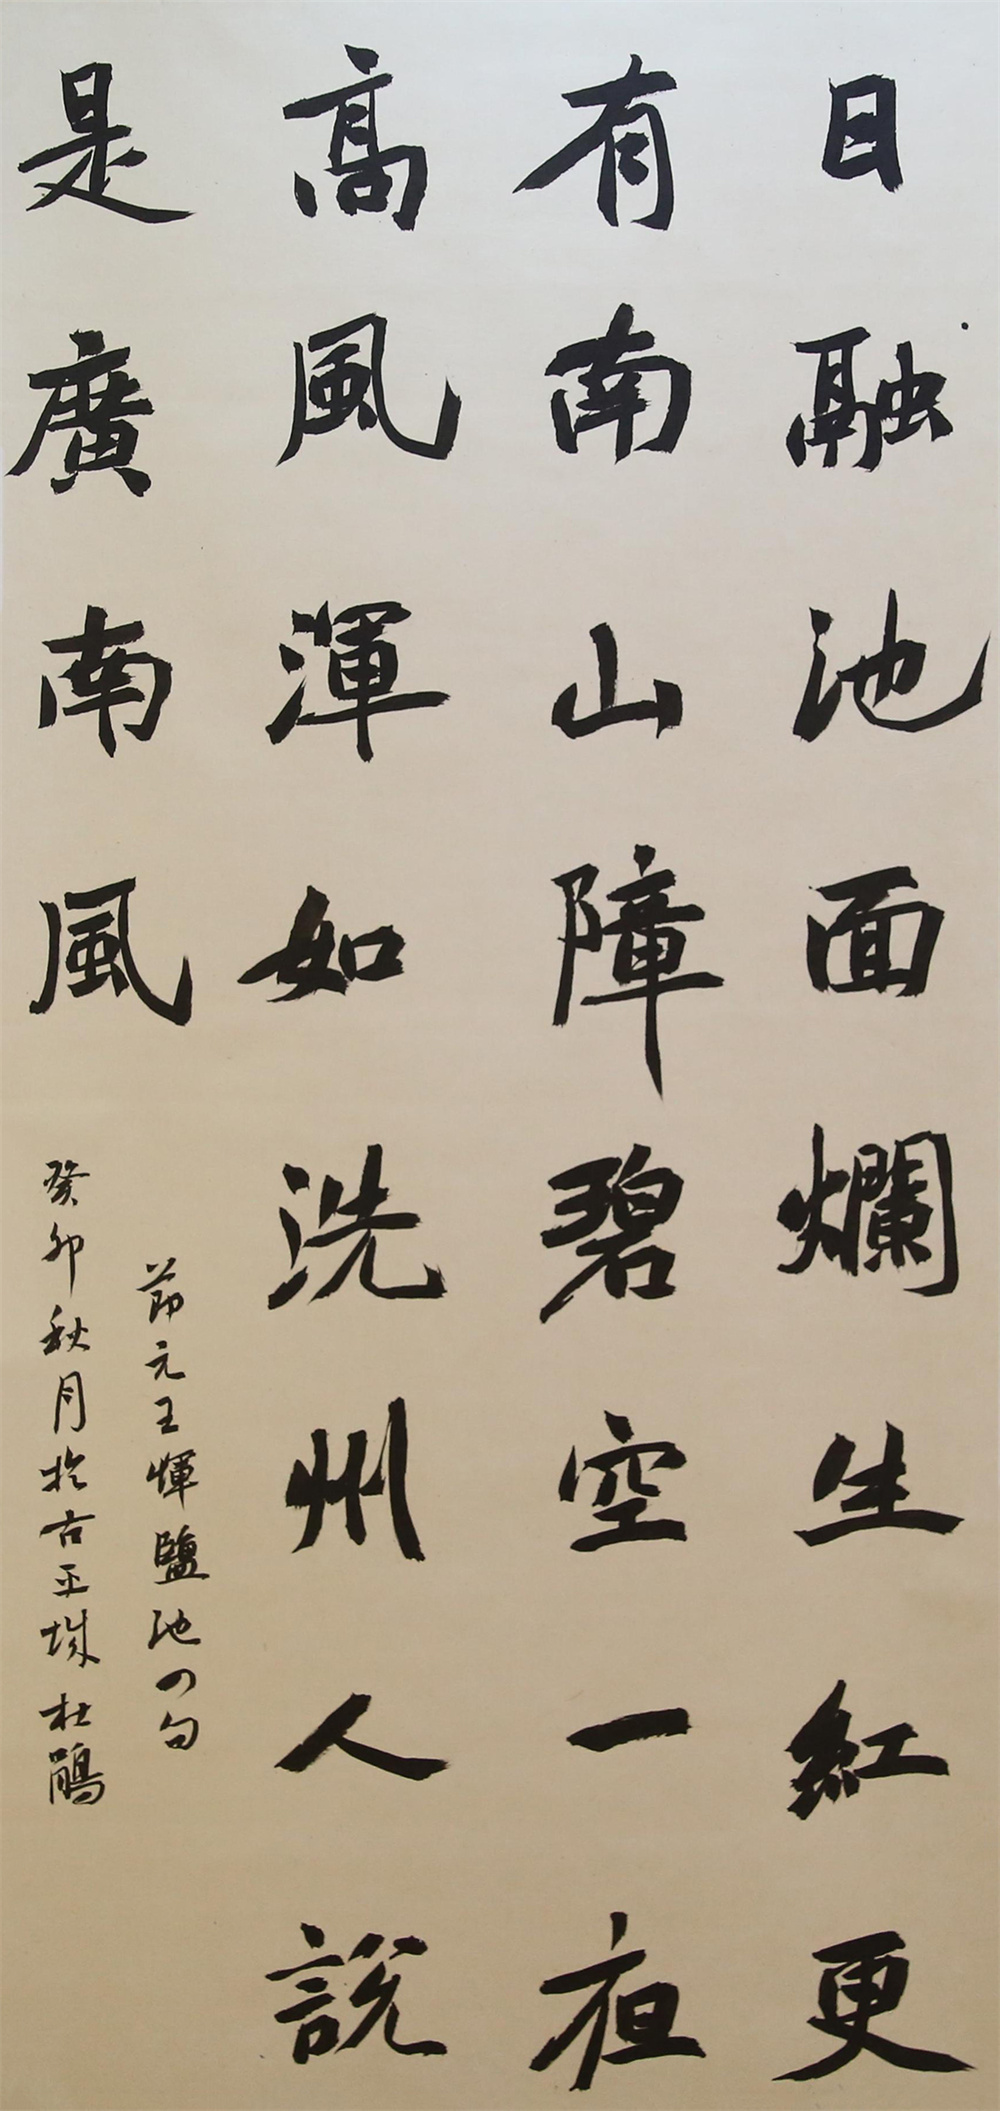 日融池面爛生紅更
有南山障碧空一夜
高風渾如洗州人說
是廣南風
節元王惲鹽池四句
癸卯秋月於古平城杜鵑